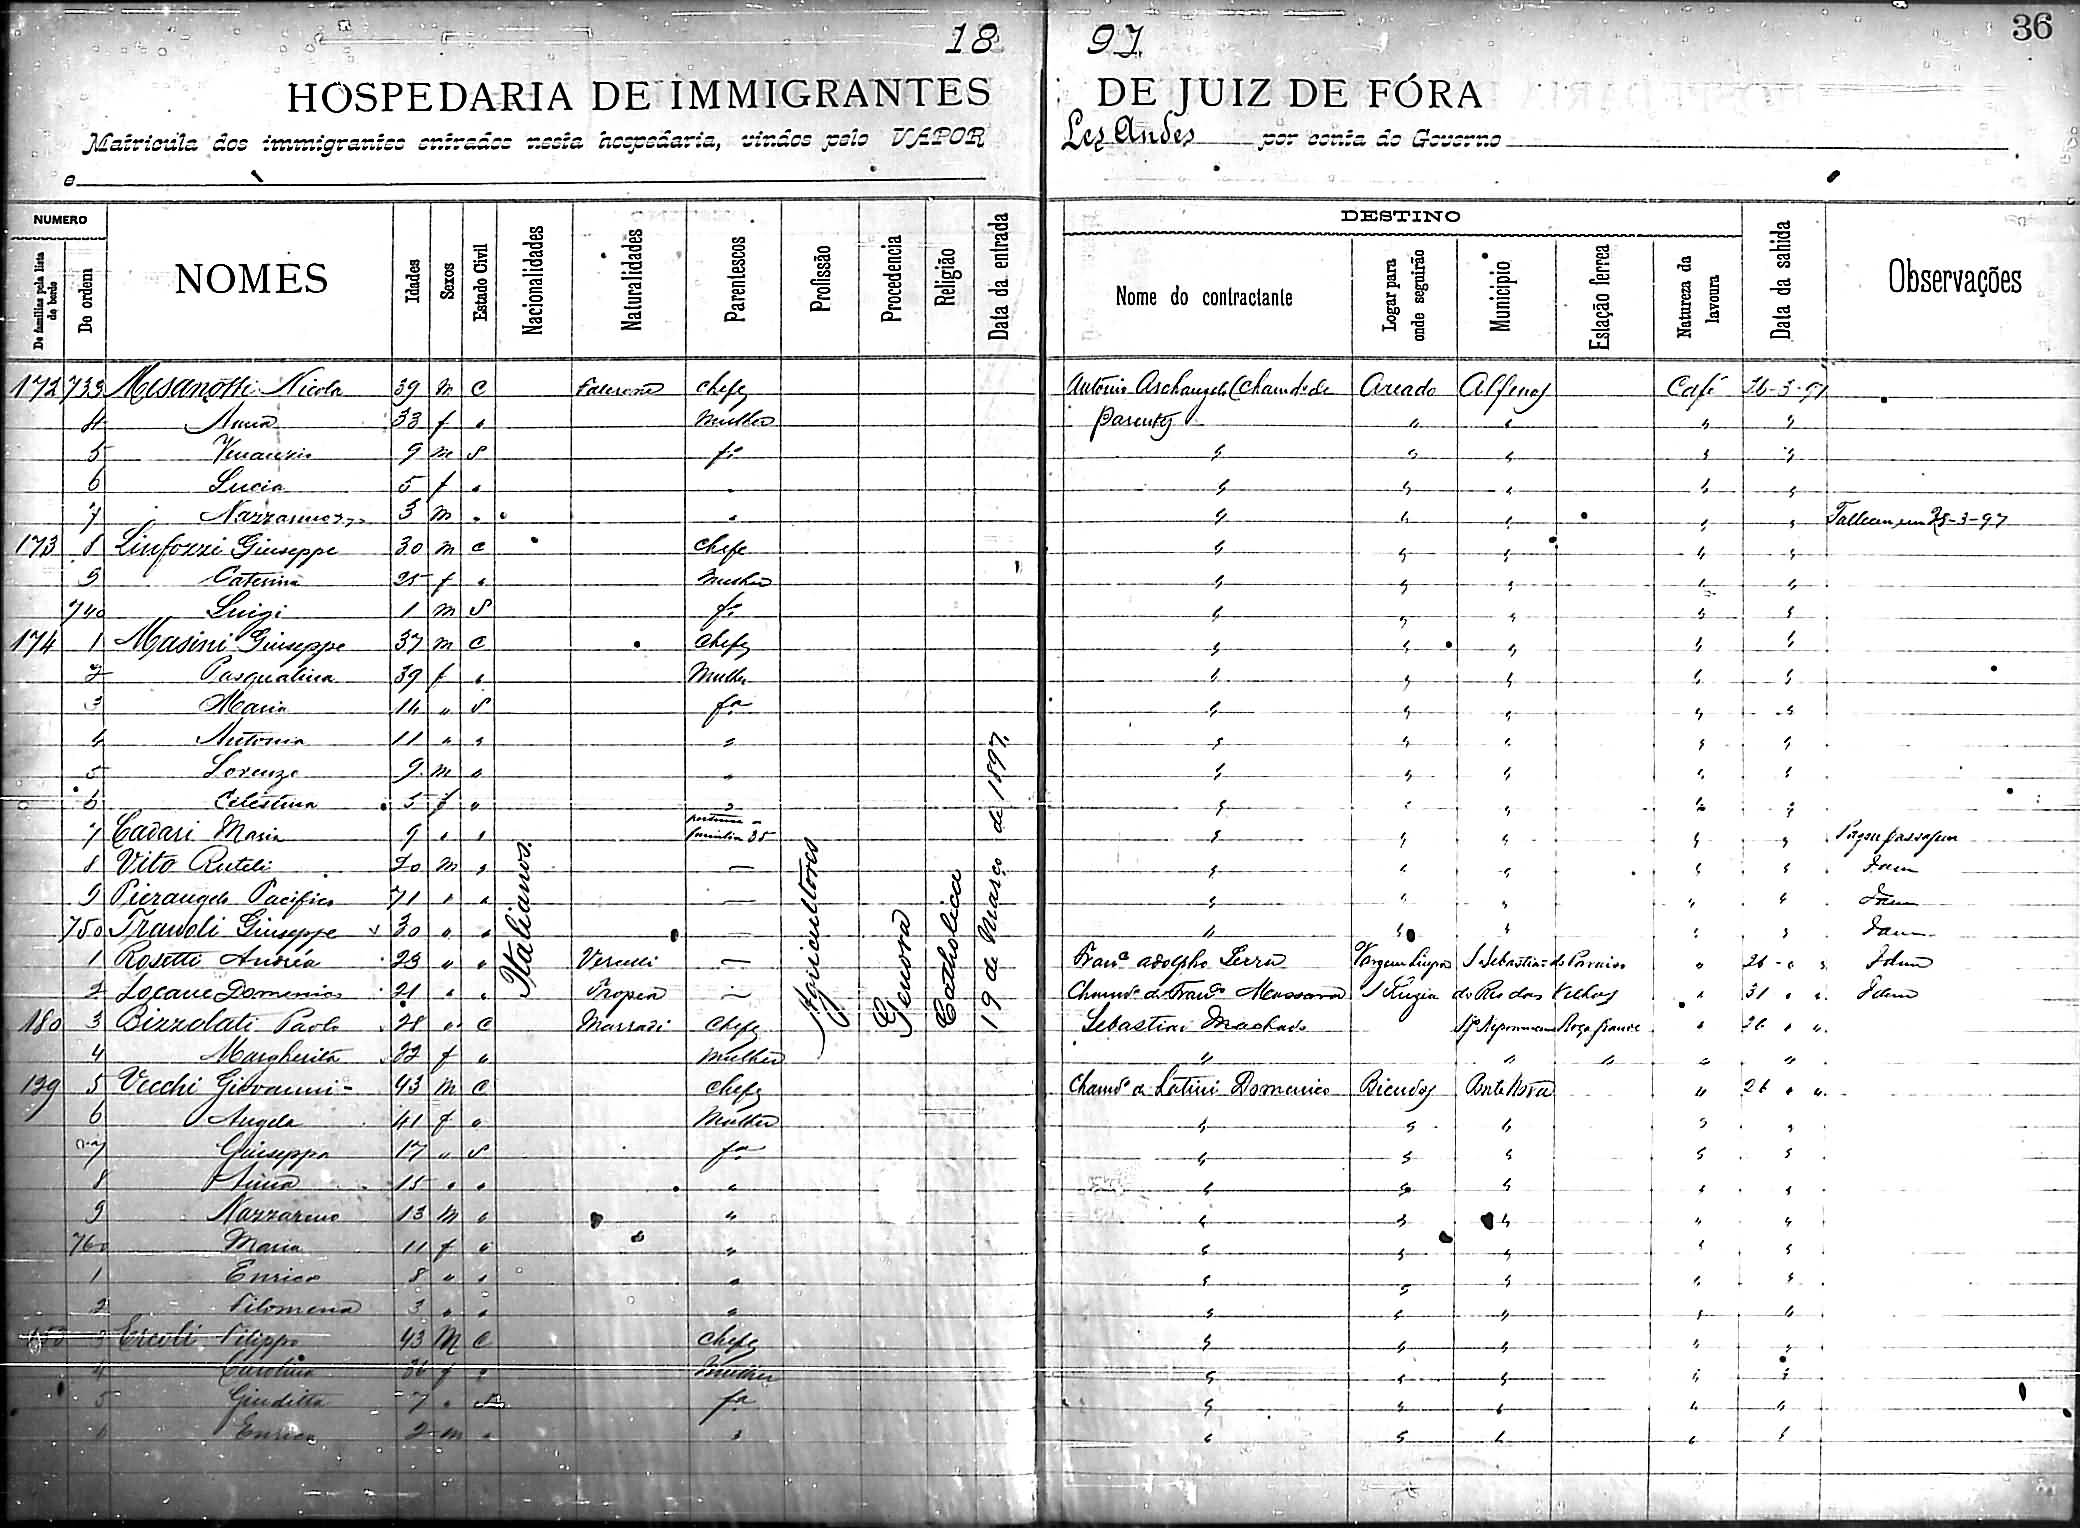 18 97 36
HOSPEDARIA DE IMMIGRANTES DE JUIZ DE FÓRA
Matricula dos immigrantes entrados nesta hospedaria, vindos pelo VAPOR Les Andes por conta do Governo
NUMERO DESTINO
De familias pela lista de bordo Do ordem NOMES Idades Sexos Estado Civil Nacionalidades Naturalidades Parentescos Profissão Procedencia Religião Data da entrada Nome do contractante Logar para onde seguirão Municipio Estação ferrea Natureza da lavoura Data da sahida Observações
Italianos Agricultores Genova Catholica 19 de Março de 1897.
172 733 Nicola 39 m C Chefe Antonio Archangelo (Chamdo de Areado Alfenas Café 26-3-97
4 Anna 33 f " Mulher parente) " " " "
5 Venanzio 9 m S fo " " " " "
6 Lucia 5 f " " " " " " "
7 Nazzareno 3 m " " " " " " " 28-3-97
173 8 Giuseppe 30 m C Chefe " " " " "
9 Caterina 25 f " Mulher " " " " "
740 Luigi 1 m S fo " " " " "
174 1 Masini Giuseppe 37 m C Chefe " " " " "
2 Pasqualina 39 f " Mulher " " " " "
3 Maria 14 " S fa " " " " "
4 Antonia 11 " " " " " " " "
5 Lorenzo 9 m " " " " " " "
6 Celestina 5 f " " " " " " "
7 Cadari Maria 9 " " familia 35 " " " " " Pagou passagem
8 Vito 20 m " — " " " " " Idem
9 Pierangelo Pacifico 71 " " — " " " " " Idem
750 Giuseppe 30 " " — " " " " " Idem
1 Rosetti Andréa 23 " " Vercelli — Franco Adolpho Vargem Limpa S Sebastião do Paraiso " 26 " " Idem
2 Domenico 21 " " Tropea — Chamdo de Franco Massara S Luzia do Rio das Velhas " 31 " " Idem
180 3 Bizzolati Paolo 28 " C Marradi Chefe Sebastião Machado Roça grande " 26 " "
4 Margherita 22 f " Mulher " " " " "
129 5 Vecchi Giovanni 43 m C Chefe Chamdo de Latini Domenico Bicudos Ponte Nova " 26 " "
6 Angela 41 f " Mulher " " " " "
7 Giuseppa 17 " S fa " " " " "
8 Anna 15 " " " " " " " "
9 Nazzareno 13 m " " " " " " "
760 Maria 11 f " " " " " " "
1 Enrica 8 " " " " " " " "
2 Filomena 3 " " " " " " " "
3 Ercoli Filippo 43 M C Chefe " " " " "
4 Carolina 36 f " Mulher " " " " "
5 Giuditta 7 " S fa " " " " "
6 Enrico 2 m " " " " " " "